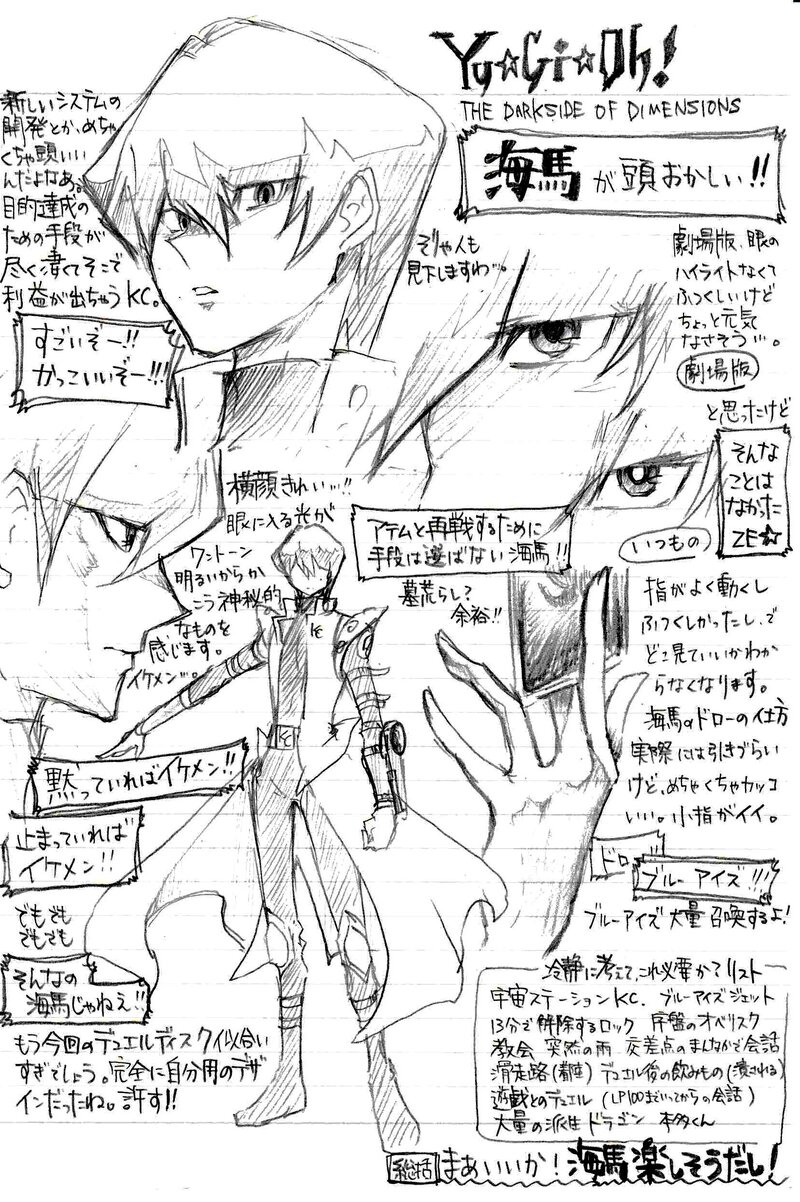 Yu☆Gi☆Oh!
THE DARKSIDE OF DIMENSIONS
海馬が頭おかしい!!
新しいシステムの
開発とか、めちゃ
くちゃ頭いい
んだよなある
目的達成の
ための手段が
尽く凄くてそこで
利益が出ちゃうKC。
すごいぞー!!
かっこいいぞー!!!
そりゃ人も
見下しますわ…。
劇場版、眼の
ハイライトなくて
ふつくしいけど
ちょっと元気
なさそう…。
劇場版
と思ったけど
そんな
ことは
なかった
ZE☆
いつもの
横顔きれい…!!
眼に入る光が
ワントーン
明るいからか
こう神秘的
なものを
感じます。
イケメン…。
アテムと再戦するために
手段は選ばない海馬!!
墓荒らし?
余裕!!
指がよく動くし
ふつくしかったし、で
どこ見ていいかわか
らなくなります。
海馬のドローの仕方
実際には引きづらい
けど、めちゃくちゃカッコ
いい。小指がイイ。
ドロー!!
ブルーアイズ!!!
ブルーアイズ大量召喚するよ!
黙っていればイケメン!!
止まっていれば
イケメン!!
でもでも
でもでも
そんなの
海馬じゃねえ!!
もう今回のデュエルディスク似合い
すぎでしょう。完全に自分用のデザ
インだったね。許す!!
冷静に考えて、これ必要かてリスト
宇宙ステーションKC. ブルーアイズジェット
13分で解除するロック 序盤のオベリスク
教会 突然の雨 交差点のまんなかで会話
滑走路(都住) デュエル後の飲みもの(潰される)
遊戯とのデュエル(LP100まといってからの会話)
大量の派生ドラゴン 本多くん
総括 まぁいいか!海馬楽しそうだし!